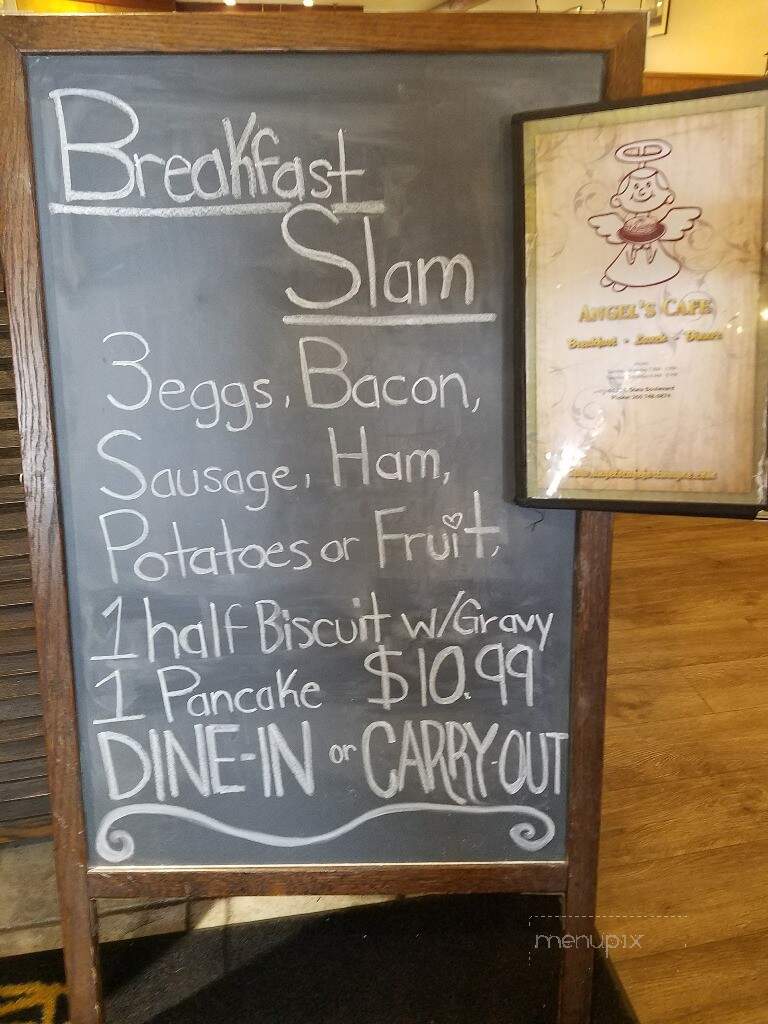 Breakfast
Slam
3 eggs, Bacon,
Sausage, Ham,
Potatoes or Fruit,
1 half Biscuit w/Gravy
1 Pancake $10.99
DINE-IN or CARRY-OUT
ANGEL'S CAFE
Breakfast • Lunch • Dinner
State Boulevard
menupix